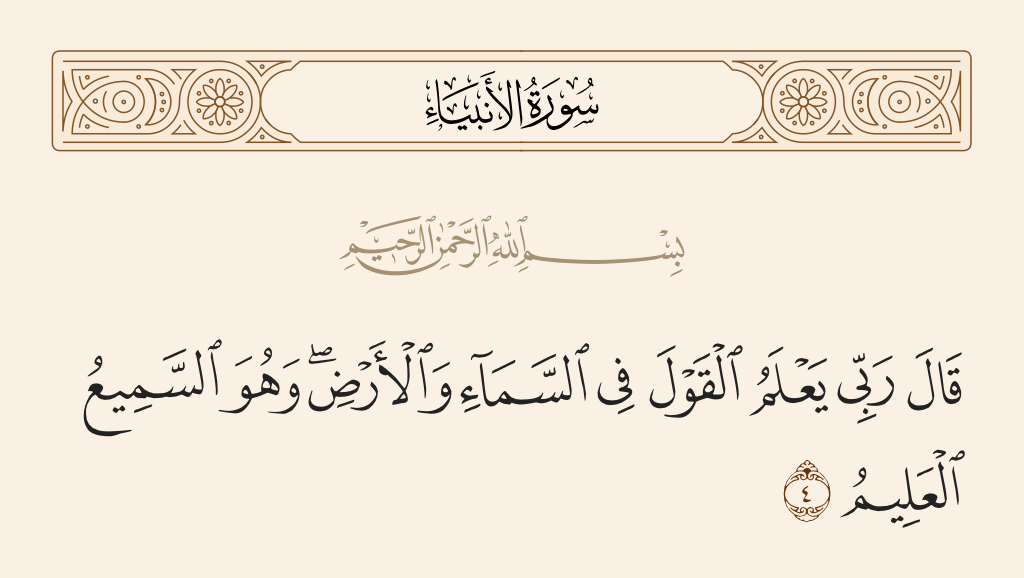 سُورَةُ الأَنبِيَاءِ
بِسْمِ ٱللَّهِ ٱلرَّحْمَٰنِ ٱلرَّحِيمِ
قَالَ رَبِّى يَعْلَمُ ٱلْقَوْلَ فِى ٱلسَّمَآءِ وَٱلْأَرْضِ ۖ وَهُوَ ٱلسَّمِيعُ
ٱلْعَلِيمُ ٤